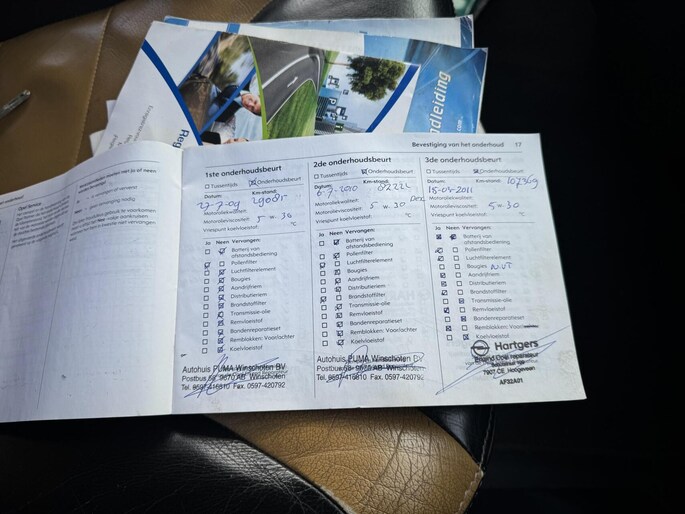 ndleiding
Bevestiging van het onderhoud 17
1ste onderhoudsbeurt
Tussentijds Onderhoudsbeurt
Datum: Km-stand:
27-7-09 29085
Motoroliekwaliteit:
Motorolieviscositeit: 5 w 30
Vriespunt koelvloeistof: °C
Ja Neen Vervangen:
Batterij van
afstandsbediening
Pollenfilter
Luchtfilterelement
Bougies
Aandrijfriem
Distributieriem
Brandstoffilter
Transmissie-olie
Remvloeistof
Bandenreparatieset
Remblokken: Voor/achter
Koelvloeistof
Autohuis PUMA Winschoten BV
Postbus 68 9670 AB Winschoten
Tel. 0597-416810 Fax. 0597-420792
2de onderhoudsbeurt
Tussentijds Onderhoudsbeurt
Datum: Km-stand:
6-7-2010 62222
Motoroliekwaliteit: Dex
Motorolieviscositeit: 5 w 30
Vriespunt koelvloeistof: °C
Ja Neen Vervangen:
Batterij van
afstandsbediening
Pollenfilter
Luchtfilterelement
Bougies
Aandrijfriem
Distributieriem
Brandstoffilter
Transmissie-olie
Remvloeistof
Bandenreparatieset
Remblokken: Voor/achter
Koelvloeistof
Autohuis PUMA Winschoten BV
Postbus 68 9670 AB Winschoten
Tel. 0597-416810 Fax. 0597-420792
3de onderhoudsbeurt
Tussentijds Onderhoudsbeurt
Datum: Km-stand:
15-04-2011
Motoroliekwaliteit:
Motorolieviscositeit: 5 = 30
Vriespunt koelvloeistof: °C
Ja Neen Vervangen:
Batterij van
afstandsbediening
Pollenfilter
Luchtfilterelement
Bougies
Aandrijfriem
Distributieriem
Brandstoffilter
Transmissie-olie
Remvloeistof
Bandenreparatieset
Remblokken: Voor/achter
Koelvloeistof
Hartgers
Erkend Opel reparateur
7907 CE Hoogeveen
AF32A01